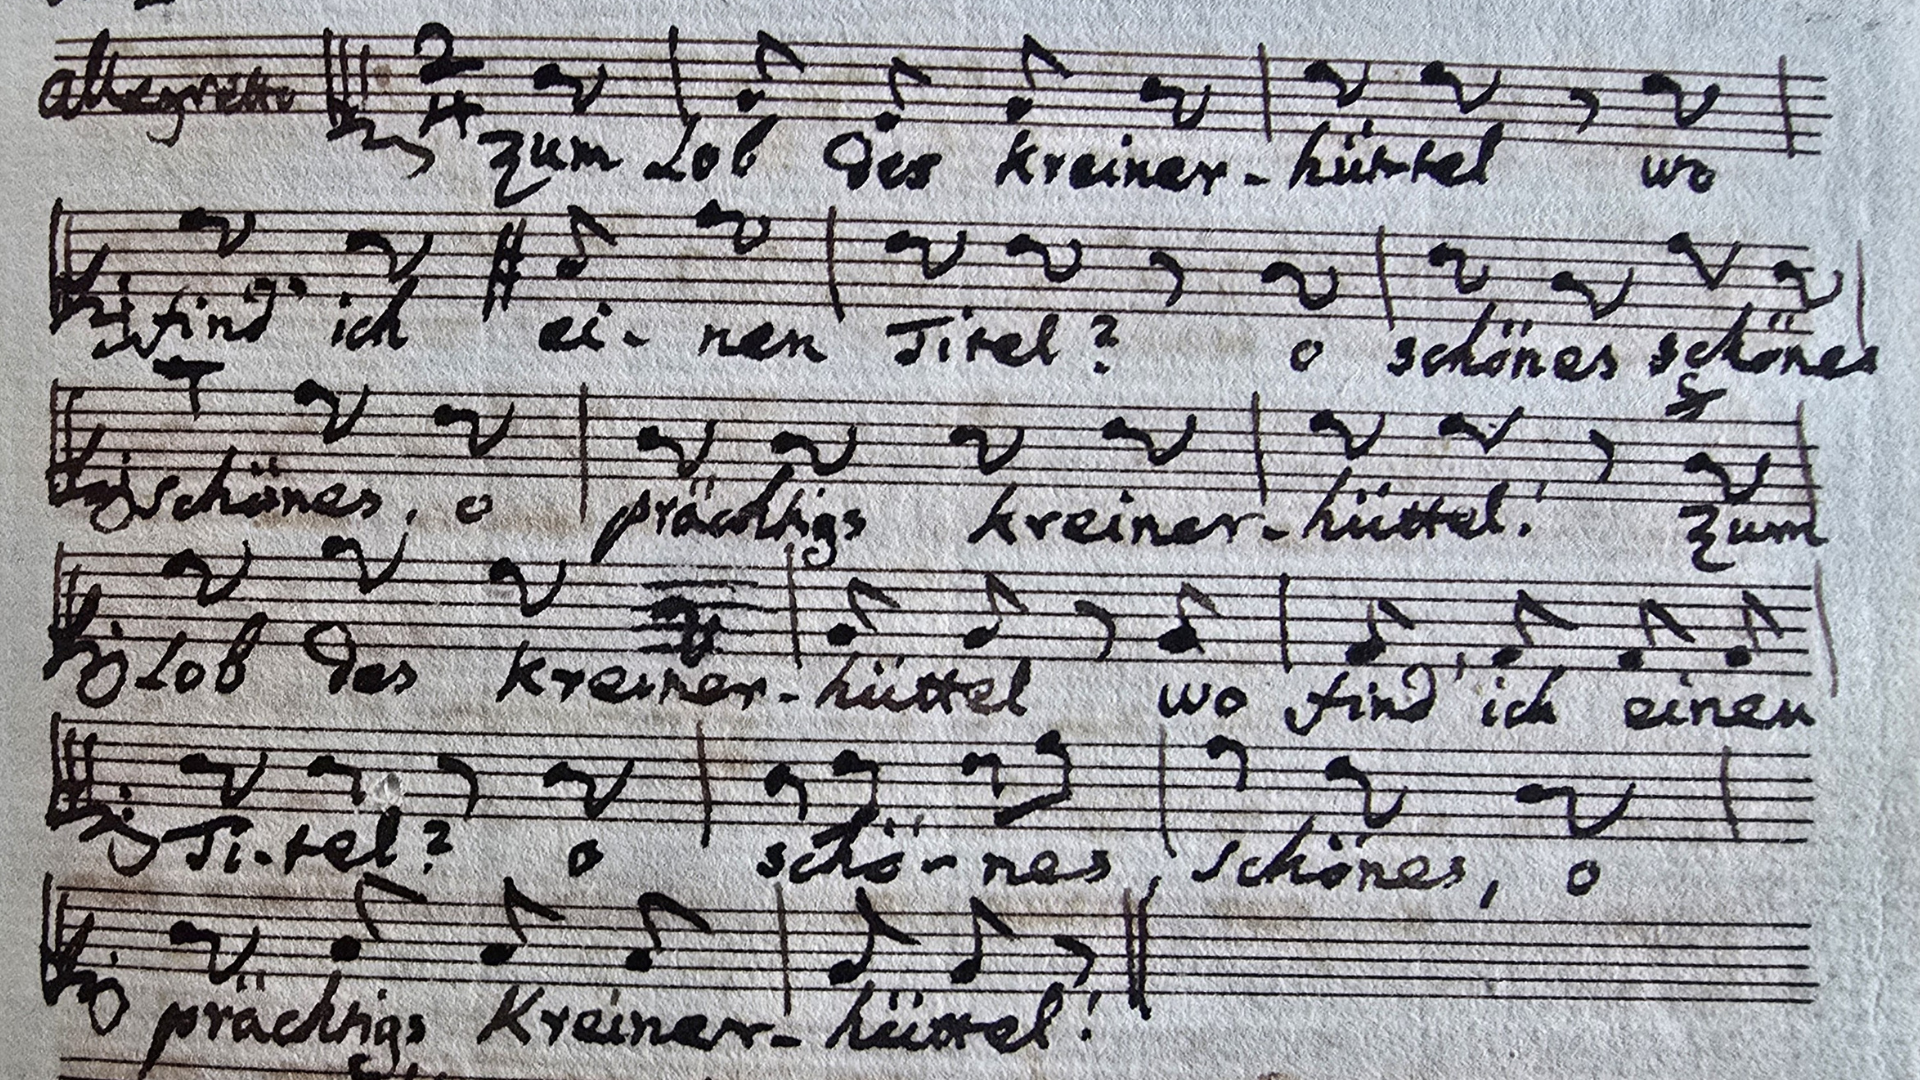 allegretto 2/4
zum Lob des kreiner-hüttel wo
find' ich ei- nen Titel? o schönes schönes
schönes, o prächtigs kreiner-hüttel! zum
Lob des kreiner-hüttel wo find' ich einen
Ti-tel? o schö-nes, schönes, o
prächtigs Kreiner-hüttel!